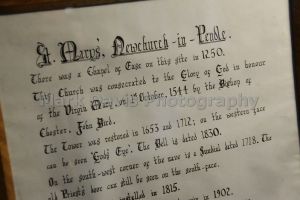 St. Mary's, Newchurch-in-Pendle.
There was a Chapel of Ease on this site in 1250.
This Church was consecrated to the Glory of God in honour
of the Virgin Mary on 1st October, 1544 by the Bishop of
Chester, John Bird.
The Tower was restored in 1653 and 1712; on the western face
can be seen 'God's Eye'. The Bell is dated 1830.
On the south-west corner of the nave is a Sundial dated 1718. The
old Priest's here can still be seen on the south-face.
installed in 1815.
in 1902.